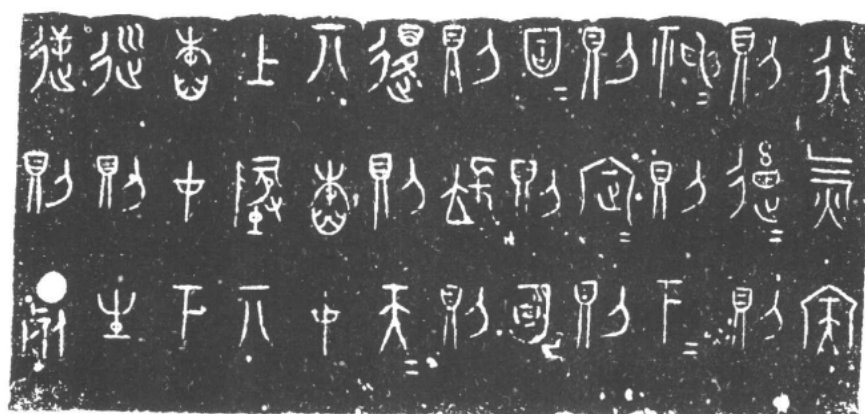 行氣深
則蓄=則
神=則下=
則定=則
固=則萌=
則長=則
退=則天=
丌舂才
上地丌
舂才下
巡則生
逆則死